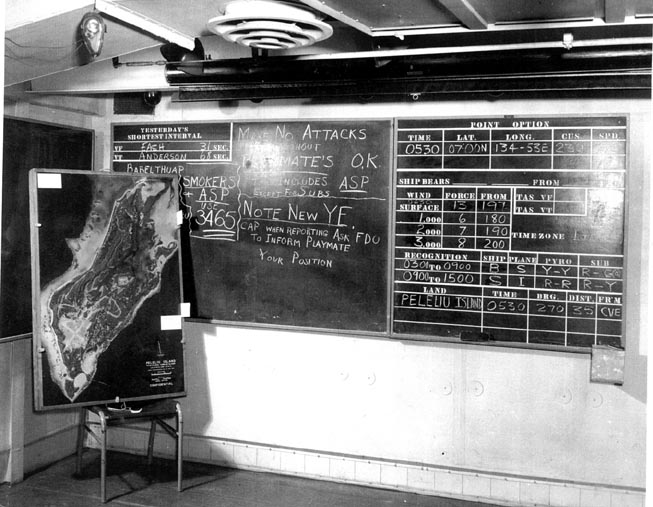 YESTERDAY'S
SHORTEST INTERVAL
VF FACH 31 SEC.
VT ANDERSON 68 SEC.
BABELTHUAP
SMOKERS
ASP
USE
3465
MAKE NO ATTACKS
WITHOUT
PLAYMATE'S O.K.
INCLUDES ASP
EXCEPT FOR SUBS
NOTE NEW YE.
CAP WHEN REPORTING ASK FDO
TO INFORM PLAYMATE
YOUR POSITION
POINT OPTION
TIME LAT. LONG. CUS. SPD.
0530 07-00N 134-53E
SHIP BEARS FROM
WIND FORCE FROM TAS VF
SURFACE 13 197 TAS VT
1,000 6 180
2,000 7 190 TIME ZONE
3,000 8 200
RECOGNITION SHIP PLANE PYRO SUB
0301 TO 0900 B S Y-Y
0900 TO 1500 S I R-R R-Y
LAND TIME BRG. DIST. FR'M
PELELIU ISLAND 0530 270 35 CVE
PELELIU ISLAND
CONFIDENTIAL